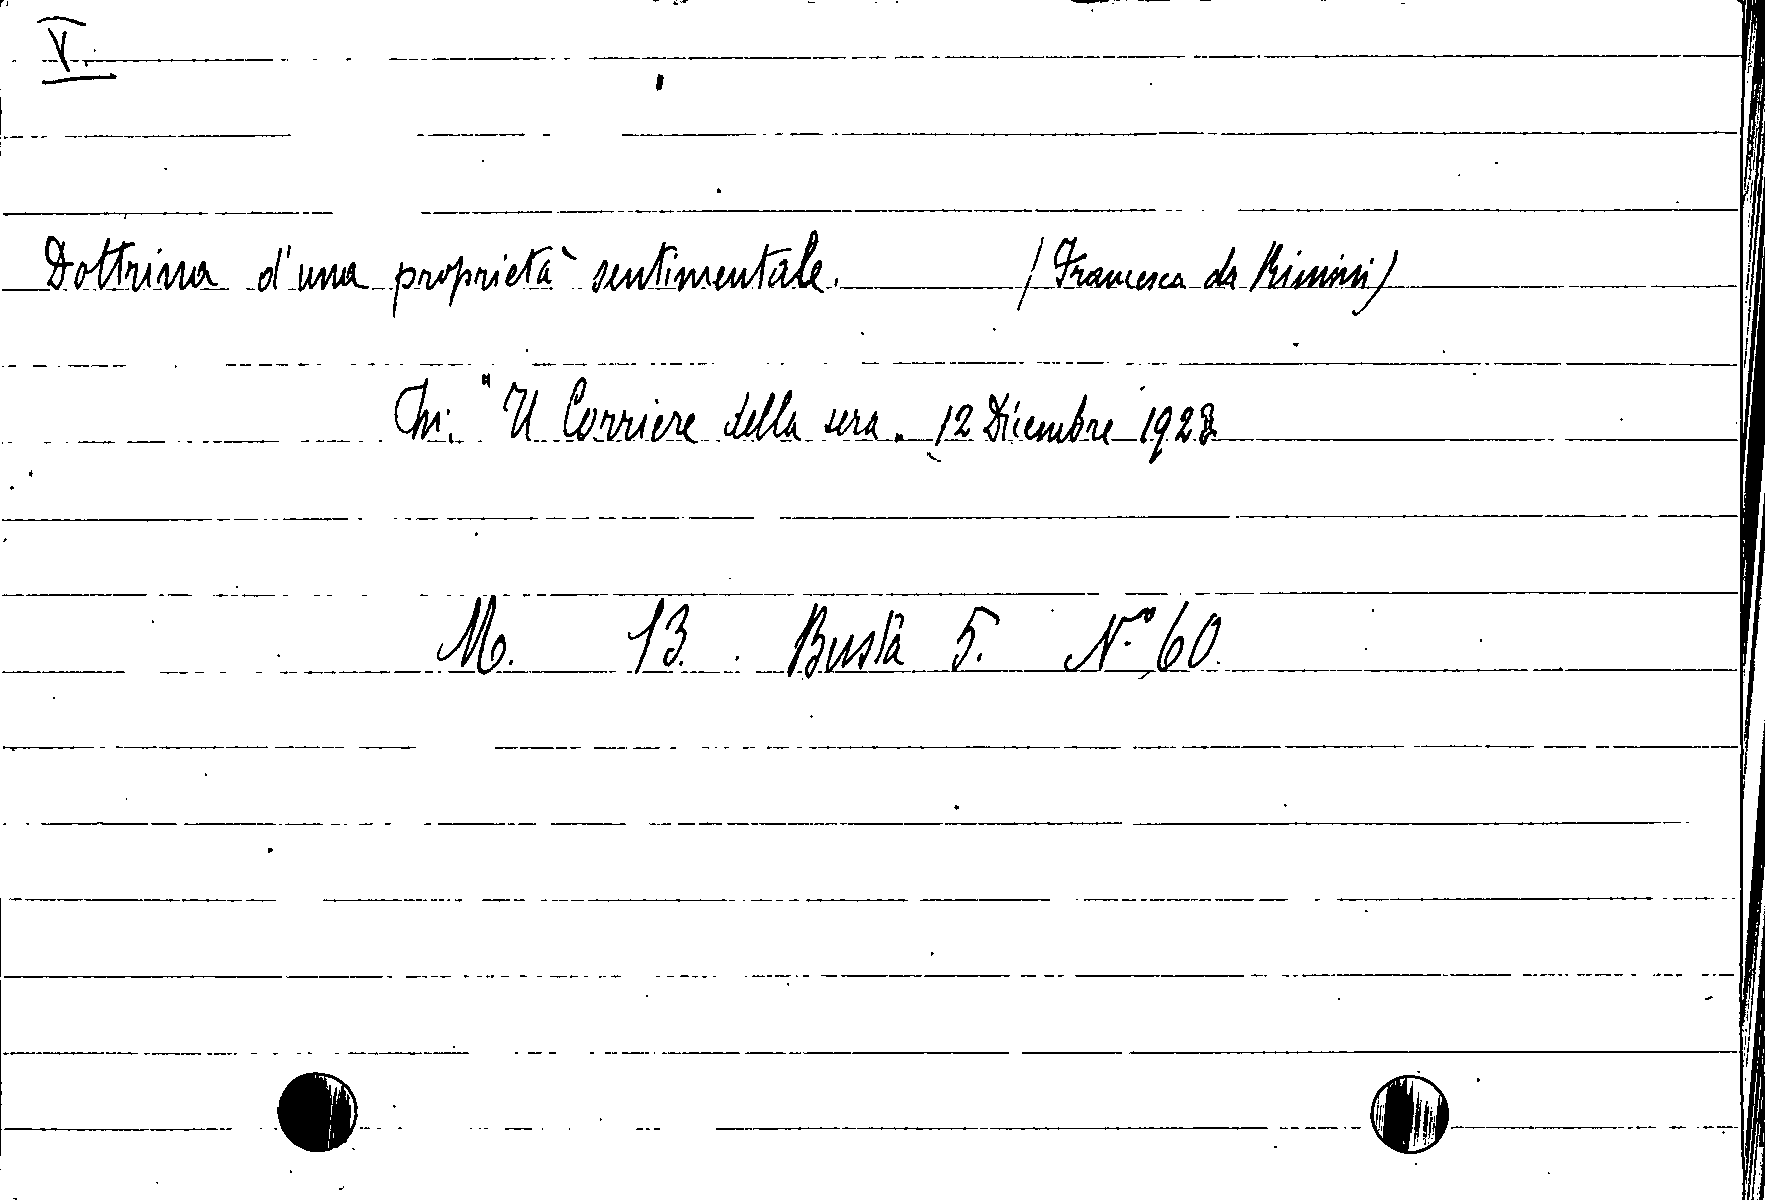 V.
Dottrina d'una proprietà sentimentale. (Francesca da Rimini)
In: "Il Corriere della sera. 12 Dicembre 1928
M. 13. Busta 5. N.° 60.